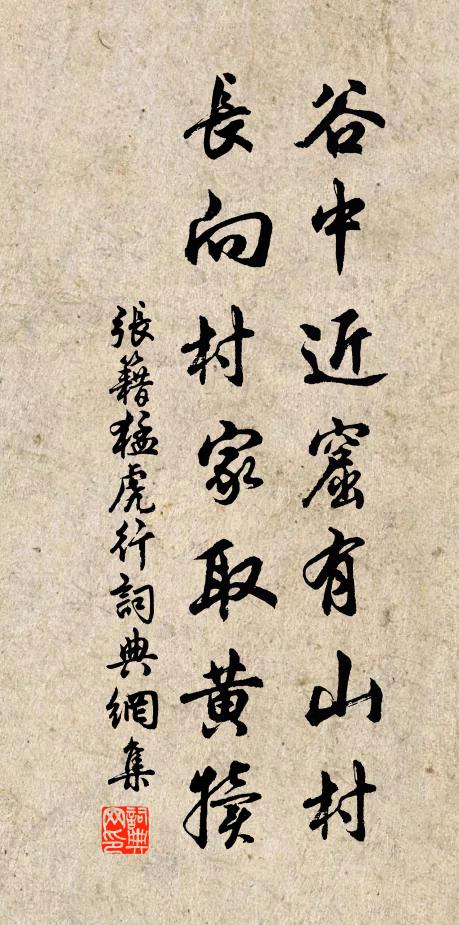 谷中近窟有山村
長向村家取黃犢
張籍猛虎行詞典網集
詞典網印